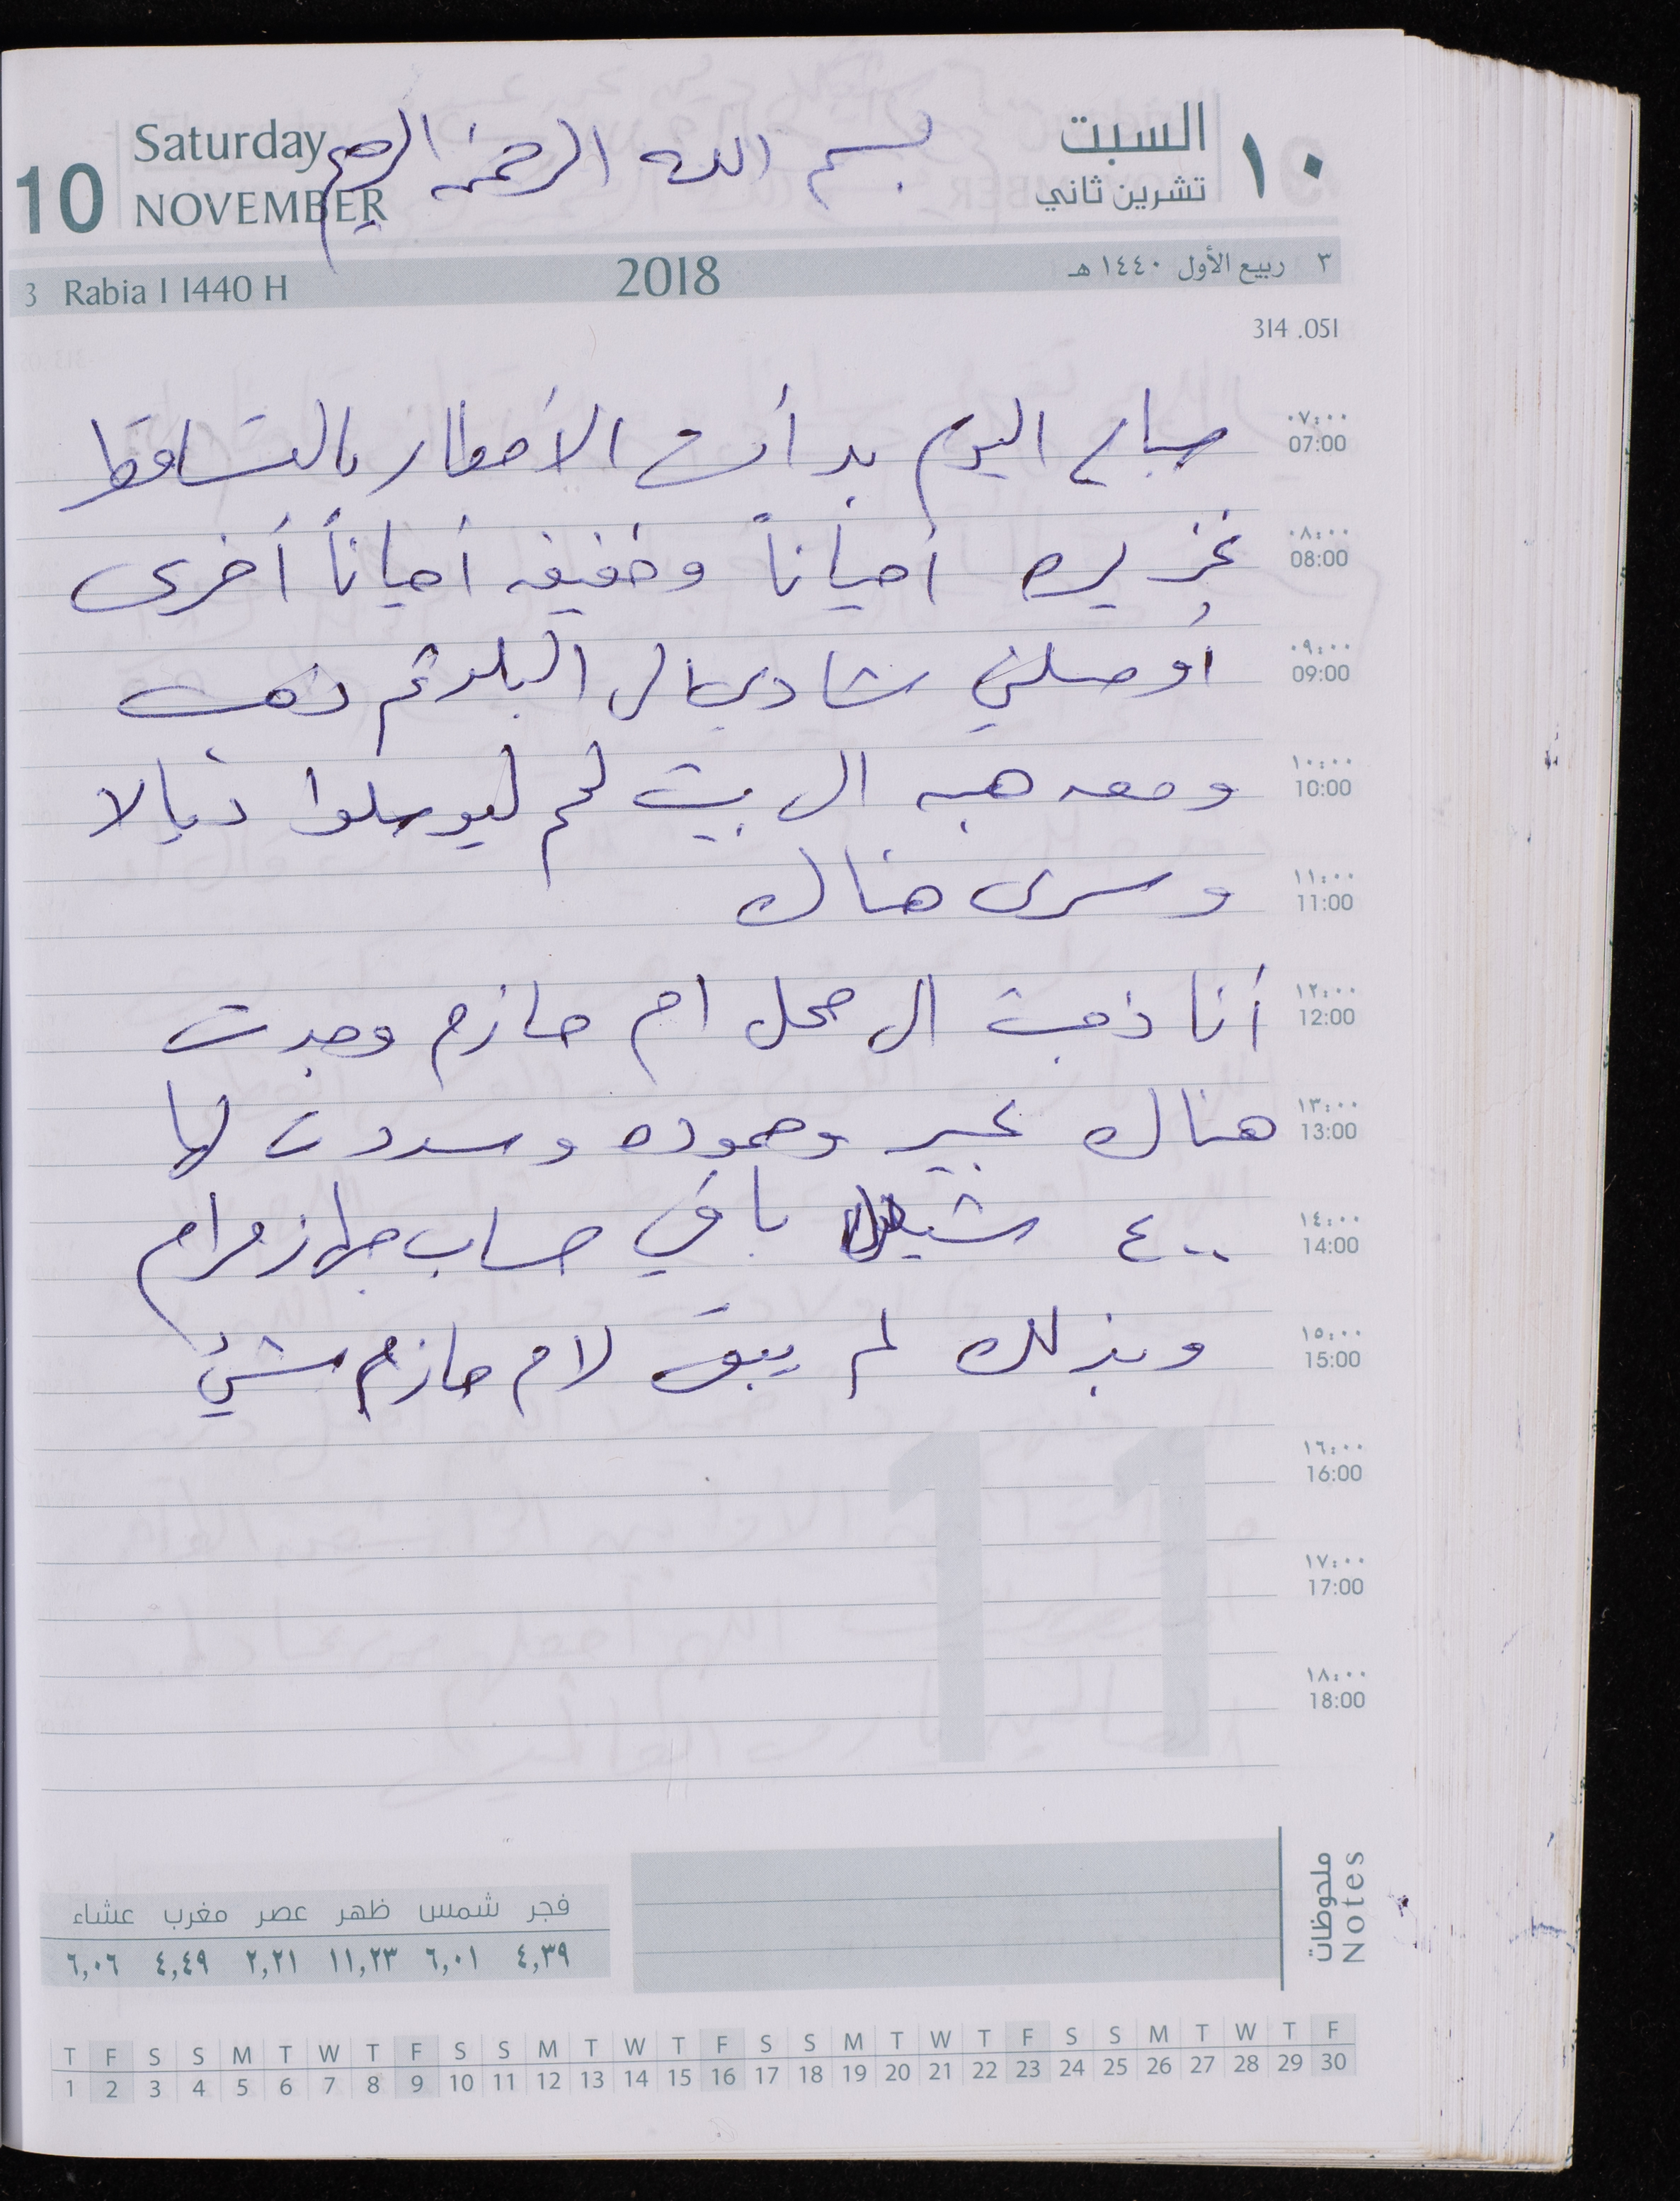 بسم الله الرحمن الرحيم
Saturday السبت
10 NOVEMBER تشرين ثاني ١٠
3 Rabia I 1440 H 2018 ٣ ربيع الأول ١٤٤٠ هـ
314 .051
٠٧:٠٠
07:00 صباح اليوم بدأت الأمطار بالتساقط
٠٨:٠٠
08:00 غزيره أحياناً وخفيفه أحياناً أخرى
٠٩:٠٠
09:00 أوصلني شادي الى البلد ثم ذهب
١٠:٠٠
10:00 ومعه هبه الى بيت لحم ليوصلوا
١١:٠٠
11:00 وسرى هناك
١٢:٠٠
12:00 أنا ذهبت الى محل ام حازم وجدت
١٣:٠٠
13:00 هناك عبير وحموده وسددت لها
١٤:٠٠
14:00 ٤٠٠ شيقل باقي حساب جهاز مرام
١٥:٠٠
15:00 وبذلك لم يبق لام حازم شيئ
١٦:٠٠
16:00
١٧:٠٠
17:00
١٨:٠٠
18:00
11
ملحوظات
Notes
فجر شمس ظهر عصر مغرب عشاء
٤,٣٩ ٦,٠١ ١١,٢٣ ٢,٢١ ٤,٤٩ ٦,٠٦
T F S S M T W T F S S M T W T F S S M T W T F S S M T W T F
1 2 3 4 5 6 7 8 9 10 11 12 13 14 15 16 17 18 19 20 21 22 23 24 25 26 27 28 29 30